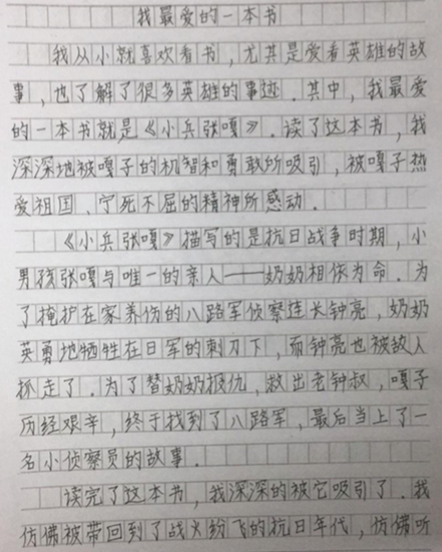 我最爱的一本书
我从小就喜欢看书，尤其是爱看英雄的故
事，也了解了很多英雄的事迹．其中，我最爱
的一本书就是《小兵张嘎》．读了这本书，我
深深地被嘎子的机智和勇敢所吸引，被嘎子热
爱祖国、宁死不屈的精神所感动．
《小兵张嘎》描写的是抗日战争时期，小
男孩张嘎与唯一的亲人——奶奶相依为命．为
了掩护在家养伤的八路军侦察连长钟亮，奶奶
英勇地牺牲在日军的刺刀下，而钟亮也被敌人
抓走了．为了替奶奶报仇，救出老钟叔，嘎子
历经艰辛，终于找到了八路军，最后当上了一
名小侦察员的故事．
读完了这本书，我深深的被它吸引了．我
仿佛被带回到了战火纷飞的抗日年代，仿佛听